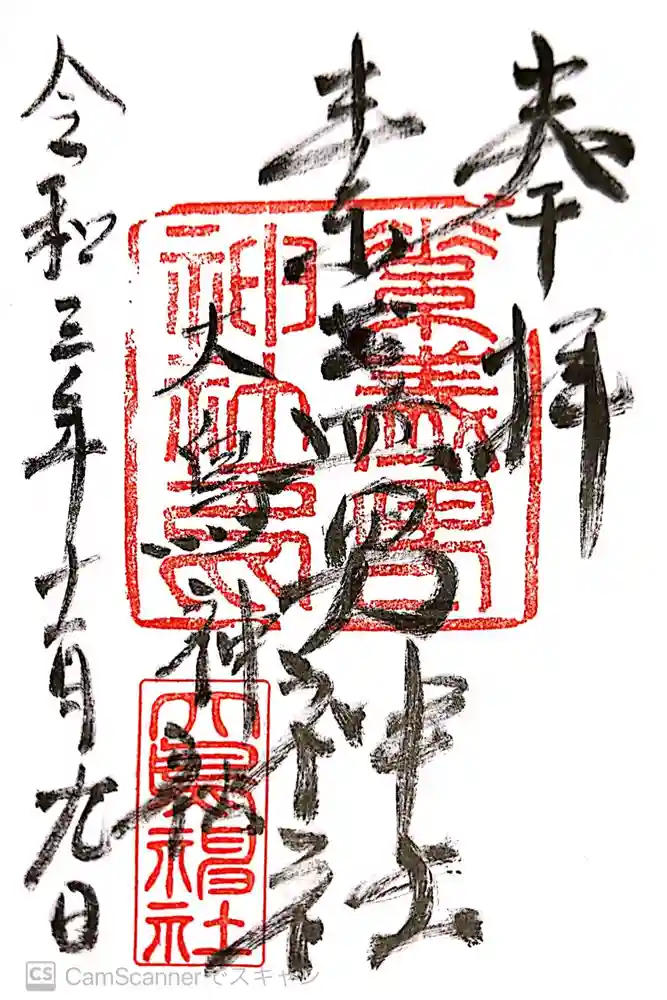 奉拝
素盞男神社
大鳥神社
令和三年十一月九日
大鳥神社
CS CamScannerでスキャン